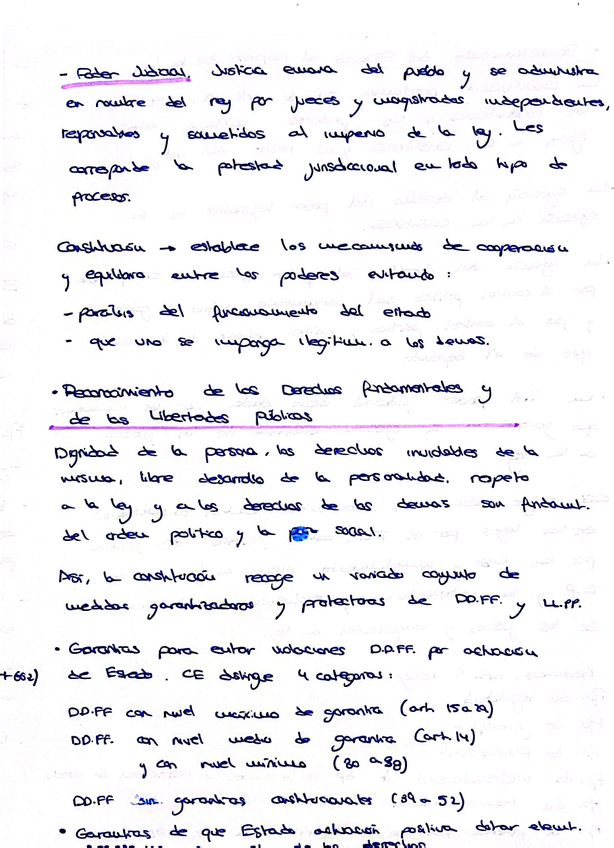 - Poder Judicial. Justicia emana del pueblo y se administra
en nombre del rey por jueces y magistrados independientes,
responsables y sometidos al imperio de la ley. Les
corresponde la potestad jurisdiccional en todo tipo de
procesos.
Constitución → establece los mecanismos de cooperación
y equilibrio entre los poderes evitando:
- parálisis del funcionamiento del estado
- que uno se imponga ilegítim. a los demas.
• Reconocimiento de los Derechos fundamentales y
de las Libertades Públicas
Dignidad de la persona, los derechos inviolables de la
misma, libre desarrollo de la personalidad, respeto
a la ley y a los derechos de los demas son fundamt.
del orden politico y la paz social.
Asi, la constitución recoge un variado conjunto de
medidas garantizadoras y protectoras de DD.FF. y LL.PP.
• Garantías para evitar violaciones DD.FF. por actuación
de Estado. CE distingue 4 categorias:
DD.FF con nivel máximo de garantía (arts 15 a 29)
DD.FF. con nivel medio de garantía (art. 14)
y con nivel mínimo (30 a 38)
DD.FF sin garantias constitucionales (39 a 52)
• Garantías de que Estado actuación positiva dotar elemt.